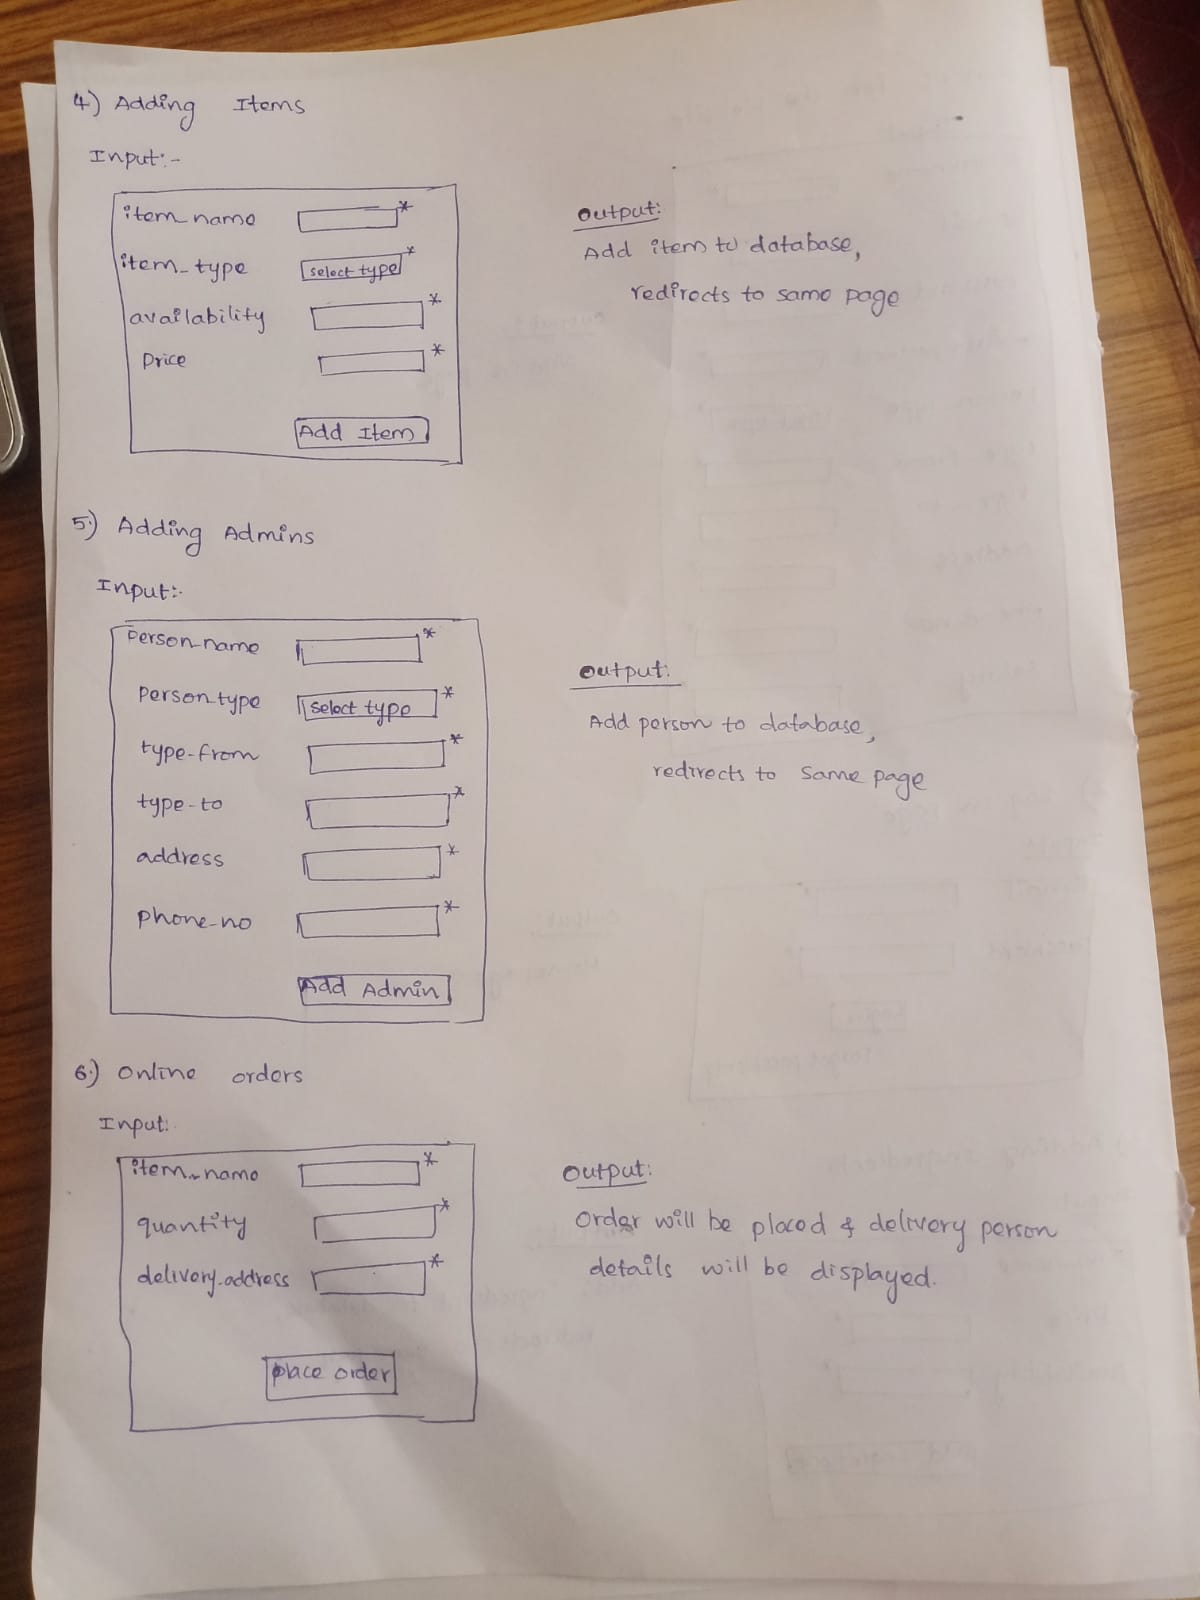 4) Adding Items
Input:-
item_name *
item_type select type *
availability *
Price *
Add Item
Output:
Add item to database,
redirects to same page
5) Adding Admins
Input:-
Person_name *
Person_type select type *
type-from *
type-to *
address *
phone_no *
Add Admin
Output:
Add person to database,
redirects to same page
6) Online orders
Input:
item_name *
quantity *
delivery_address *
place order
Output:
Order will be placed & delivery person
details will be displayed.